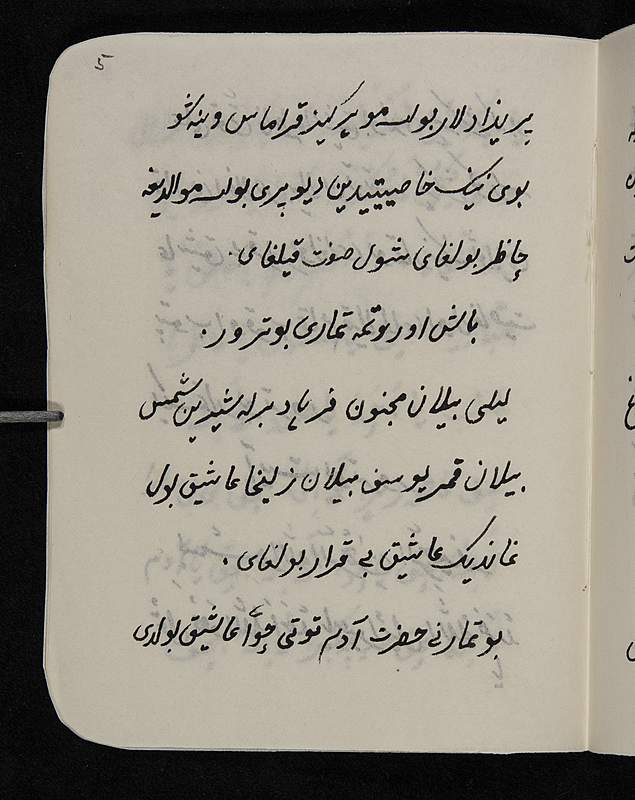 5
پریزادلار بولسه مو بیر کیز قراماس وینه شو
بوی نینک خاصیتیدین دیو پری بولسه مو الدیغه
حاظر بولغای شول صفت قیلغای .
باش اورتمه تماری بو ترور .
لیلی بیلان مجنون فرهاد برله شیرین شمس
بیلان قمر یوسف بیلان زلیخا عاشیق بول
غاندیک عاشیق بی قرار بولغای .
بو تمارنی حضرت آدم توتی حوّا عاشیق بولدی